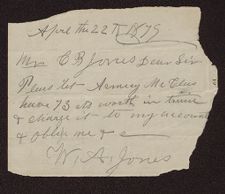 April the 22 1879
Mrs C B Jones Dear Sir
Pleas let
have 75 cts worth in trade
& charge it to my account
& oblige me & c
W. A. Jones